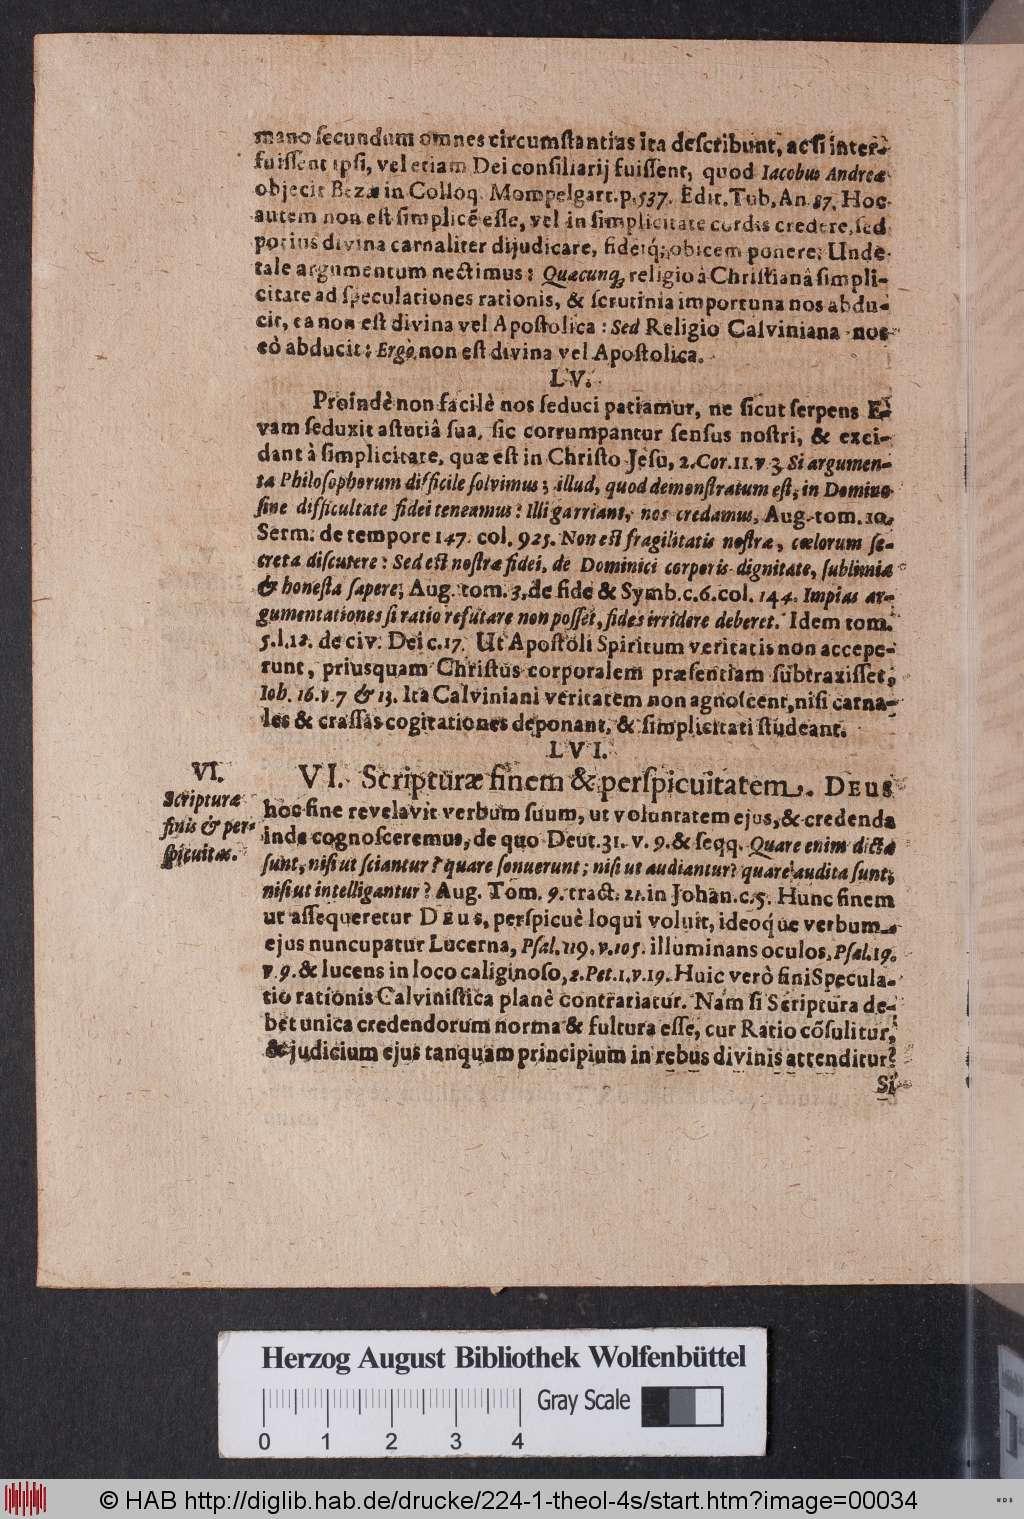 mano ſecundum omnes circumſtantias ita deſcribunt, ac ſi inter-
fuiſſent ipſi, vel etiam Dei conſiliarij fuiſſent, quod Iacobus Andreæ
objecit Bezæ in Colloq. Mompelgart. p. 537. Edit. Tub. An. 87. Hoc
autem non eſt ſimplicẽ eſſe, vel in ſimplicitate cordis credere, ſed
potius divina carnaliter dijudicare, fideiq́; obicem ponere: Unde
tale argumentum nectimus: Quæcunq, religio à Chriſtianâ ſimpli-
citate ad ſpeculationes rationis, & ſcrutinia importuna nos abdu-
cit, ea non eſt divina vel Apoſtolica: Sed Religio Calviniana nos
eò abducit: Ergò non eſt divina vel Apoſtolica.
LV.
Proindè non facilè nos ſeduci patiamur, ne ſicut ſerpens E-
vam ſeduxit aſtutiâ ſua, ſic corrumpantur ſenſus noſtri, & exci-
dant à ſimplicitate, quæ eſt in Chriſto Jeſu, 2. Cor. 11. v 3. Si argumen-
ta Philoſophorum difficile ſolvimus; illud, quod demonſtratum eſt, in Domino
ſine difficultate fidei teneamus: Illi garriant, nos credamus, Aug. tom. 10.
Serm. de tempore 147. col. 925. Non eſt fragilitatis noſtræ, cœlorum ſe-
creta diſcutere: Sed eſt noſtræ fidei, de Dominici corporis dignitate, ſublimia
& honeſta ſapere; Aug. tom. 3. de fide & Symb. c. 6. col. 144. Impias ar-
gumentationes ſi ratio refutare non poſſet, fides irridere deberet. Idem tom.
5. l. 12. de civ. Dei c. 17. Ut Apoſtoli Spiritum veritatis non accepe-
runt, priusquam Chriſtus corporalem præſentiam ſubtraxiſſet,
Ioh. 16. v. 7 & 13. Ita Calviniani veritatem non agnoſcent, niſi carna-
les & craſſas cogitationes deponant, & ſimplicitati ſtudeant.
LVI.
VI.
Scripturæ
finis & per-
ſpicuitas.
VI. Scripturæ finem & perſpicuitatem. DEUS
hoc fine revelavit verbum ſuum, ut voluntatem ejus, & credenda
inde cognoſceremus, de quo Deut. 31. v. 9. & ſeqq. Quare enim dicta
ſunt, niſi ut ſciantur? quare ſonuerunt; niſi ut audiantur? quare audita ſunt;
niſi ut intelligantur? Aug. Tom. 9. tract. 21. in Johan. c. 5. Hunc finem
ut aſſequeretur DEUS, perſpicuè loqui voluit, ideoq́ue verbum
ejus nuncupatur Lucerna, Pſal. 119. v. 105. illuminans oculos, Pſal. 19.
v. 9. & lucens in loco caliginoſo, 2. Pet. 1. v. 19. Huic verò fini Specula-
tio rationis Calviniſtica planè contrariatur. Nam ſi Scriptura de-
bet unica credendorum norma & fultura eſſe, cur Ratio cõſulitur,
& judicium ejus tanquam principium in rebus divinis attenditur?
Si
Herzog August Bibliothek Wolfenbüttel
Gray Scale
0 1 2 3 4
© HAB http://diglib.hab.de/drucke/224-1-theol-4s/start.htm?image=00034